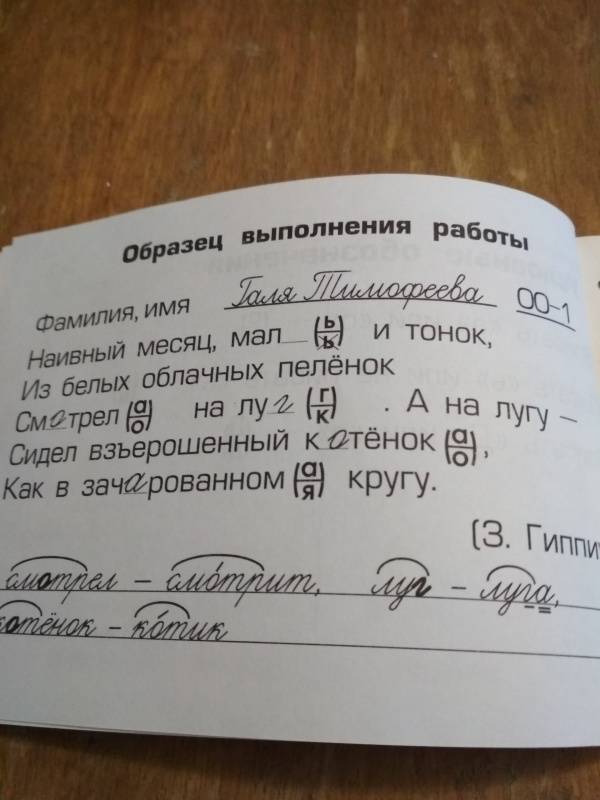 Образец выполнения работы
Фамилия, имя Галя Тимофеева 00-1
Наивный месяц, мал (ь/ь) и тонок,
Из белых облачных пелёнок
Смотрел (а/о) на луг (г/к). А на лугу –
Сидел взъерошенный котёнок (а/о),
Как в зачарованном (а/я) кругу.
(З. Гиппи
смотрел – смо́трит, луг – луга,
котёнок – ко́тик